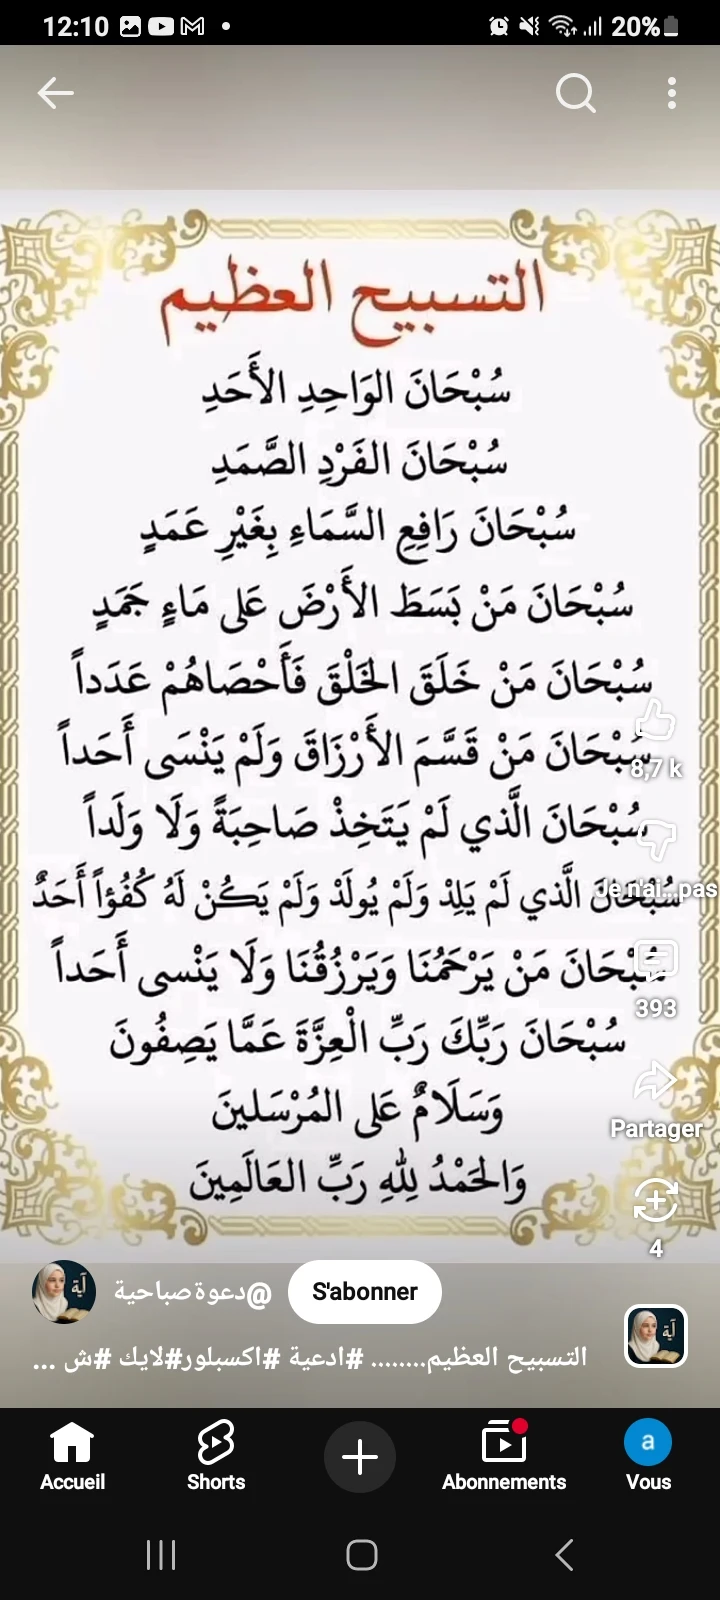 12:10
20%
التسبيح العظيم
سُبْحَانَ الوَاحِدِ الأَحَدِ
سُبْحَانَ الفَرْدِ الصَّمَدِ
سُبْحَانَ رَافِعِ السَّمَاءِ بِغَيْرِ عَمَدٍ
سُبْحَانَ مَنْ بَسَطَ الأَرْضَ عَلى مَاءٍ جَمَدٍ
سُبْحَانَ مَنْ خَلَقَ الخَلْقَ فَأَحْصَاهُمْ عَدَداً
سُبْحَانَ مَنْ قَسَّمَ الأَرْزَاقَ وَلَمْ يَنْسَى أَحَداً
8,7 k
سُبْحَانَ الَّذي لَمْ يَتَخِذْ صَاحِبَةً وَلَا وَلَداً
سُبْحَانَ الَّذي لَمْ يَلِدْ وَلَمْ يُولَدْ وَلَمْ يَكُنْ لَهُ كُفُؤاً أَحَدٌ
Je n'ai...pas
سُبْحَانَ مَنْ يَرْحَمُنَا وَيَرْزُقُنَا وَلَا يَنْسى أَحَداً
393
سُبْحَانَ رَبِّكَ رَبِّ الْعِزَّةَ عَمَّا يَصِفُونَ
وَسَلَامٌ عَلى المُرْسَلينَ
Partager
وَالحَمْدُ لِلهِ رَبِّ العَالَمِينَ
4
@دعوةصباحية
S'abonner
التسبيح العظيم........ #ادعية #اكسبلور#لايك #ش ...
Accueil
Shorts
Abonnements
a
Vous